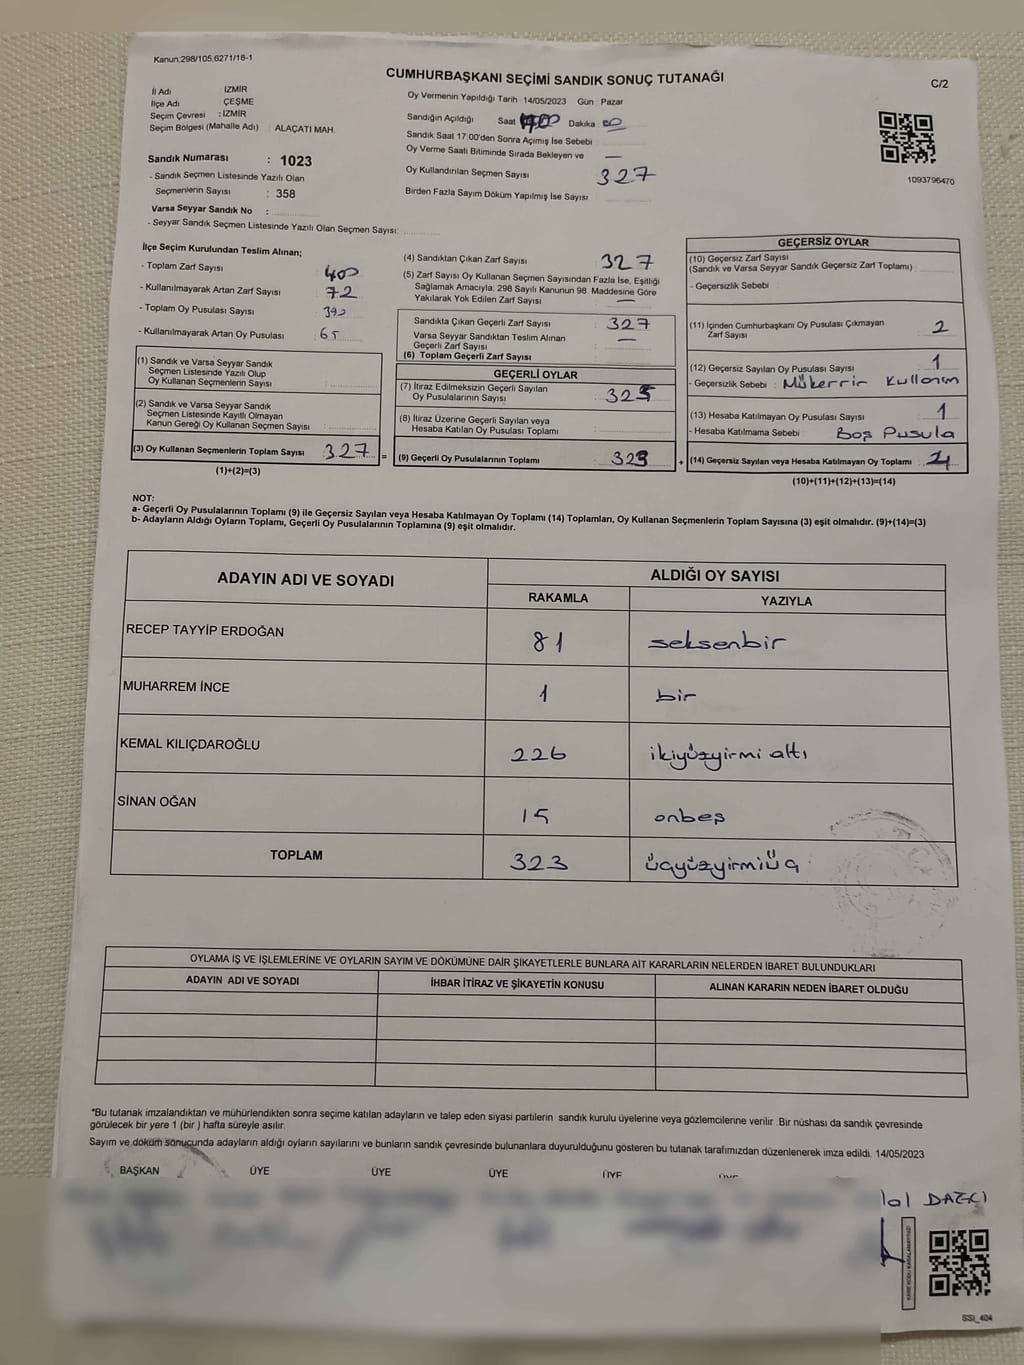 Kanun;298/105,6271/18-1
CUMHURBAŞKANI SEÇİMİ SANDIK SONUÇ TUTANAĞI
C/2
İl Adı İZMİR
İlçe Adı ÇEŞME
Seçim Çevresi : İZMİR
Seçim Bölgesi (Mahalle Adı) : ALAÇATI MAH.
Oy Vermenin Yapıldığı Tarih 14/05/2023 Gün : Pazar
Sandığın Açıldığı Saat Dakika : 00
Sandık Saat 17:00'den Sonra Açımış İse Sebebi
Oy Verme Saati Bitiminde Sırada Bekleyen ve —
Oy Kullandırılan Seçmen Sayısı 327
Birden Fazla Sayım Döküm Yapılmış İse Sayısı
1093796470
Sandık Numarası : 1023
- Sandık Seçmen Listesinde Yazılı Olan
Seçmenlerin Sayısı : 358
Varsa Seyyar Sandık No :
- Seyyar Sandık Seçmen Listesinde Yazılı Olan Seçmen Sayısı:
İlçe Seçim Kurulundan Teslim Alınan;
- Toplam Zarf Sayısı : 400
- Kullanılmayarak Artan Zarf Sayısı : 72
- Toplam Oy Pusulası Sayısı : 390
- Kullanılmayarak Artan Oy Pusulası : 65
(1) Sandık ve Varsa Seyyar Sandık
Seçmen Listesinde Yazılı Olup
Oy Kullanan Seçmenlerin Sayısı :
(2) Sandık ve Varsa Seyyar Sandık
Seçmen Listesinde Kayıtlı Olmayan
Kanun Gereği Oy Kullanan Seçmen Sayısı :
(3) Oy Kullanan Seçmenlerin Toplam Sayısı : 327 =
(1)+(2)=(3)
(4) Sandıktan Çıkan Zarf Sayısı 327
(5) Zarf Sayısı Oy Kullanan Seçmen Sayısından Fazla İse, Eşitliği
Sağlamak Amacıyla; 298 Sayılı Kanunun 98. Maddesine Göre
Yakılarak Yok Edilen Zarf Sayısı —
Sandıkta Çıkan Geçerli Zarf Sayısı : 327
Varsa Seyyar Sandıktan Teslim Alınan
Geçerli Zarf Sayısı : —
(6) Toplam Geçerli Zarf Sayısı :
GEÇERLİ OYLAR
(7) İtiraz Edilmeksizin Geçerli Sayılan
Oy Pusulalarının Sayısı :
(8) İtiraz Üzerine Geçerli Sayılan veya
Hesaba Katılan Oy Pusulası Toplamı :
(9) Geçerli Oy Pusulalarının Toplamı : 323 +
GEÇERSİZ OYLAR
(10) Geçersiz Zarf Sayısı
(Sandık ve Varsa Seyyar Sandık Geçersiz Zarf Toplamı) :
- Geçersizlik Sebebi :
(11) İçinden Cumhurbaşkanı Oy Pusulası Çıkmayan
Zarf Sayısı : 2
(12) Geçersiz Sayılan Oy Pusulası Sayısı : 1
- Geçersizlik Sebebi : Mükerrir Kullanım
(13) Hesaba Katılmayan Oy Pusulası Sayısı : 1
- Hesaba Katılmama Sebebi : Boş Pusula
(14) Geçersiz Sayılan veya Hesaba Katılmayan Oy Toplamı :
(10)+(11)+(12)+(13)=(14)
NOT:
a- Geçerli Oy Pusulalarının Toplamı (9) ile Geçersiz Sayılan veya Hesaba Katılmayan Oy Toplamı (14) Toplamları, Oy Kullanan Seçmenlerin Toplam Sayısına (3) eşit olmalıdır. (9)+(14)=(3)
b- Adayların Aldığı Oyların Toplamı, Geçerli Oy Pusulalarının Toplamına (9) eşit olmalıdır.
ADAYIN ADI VE SOYADI ALDIĞI OY SAYISI
RAKAMLA YAZIYLA
RECEP TAYYİP ERDOĞAN 81 seksenbir
MUHARREM İNCE 1 bir
KEMAL KILIÇDAROĞLU 226 ikiyüzyirmi altı
SİNAN OĞAN 15 onbeş
TOPLAM 323 üçyüzyirmiüç
OYLAMA İŞ VE İŞLEMLERİNE VE OYLARIN SAYIM VE DÖKÜMÜNE DAİR ŞİKAYETLERLE BUNLARA AİT KARARLARIN NELERDEN İBARET BULUNDUKLARI
ADAYIN ADI VE SOYADI İHBAR İTİRAZ VE ŞİKAYETİN KONUSU ALINAN KARARIN NEDEN İBARET OLDUĞU
*Bu tutanak imzalandıktan ve mühürlendikten sonra seçime katılan adayların ve talep eden siyasi partilerin sandık kurulu üyelerine veya gözlemcilerine verilir. Bir nüshası da sandık çevresinde
görülecek bir yere 1 (bir ) hafta süreyle asılır.
Sayım ve döküm sonucunda adayların aldığı oyların sayılarını ve bunların sandık çevresinde bulunanlara duyurulduğunu gösteren bu tutanak tarafımızdan düzenlenerek imza edildi. 14/05/2023
BAŞKAN ÜYE ÜYE ÜYE ÜYE ÜYE
SSI_404